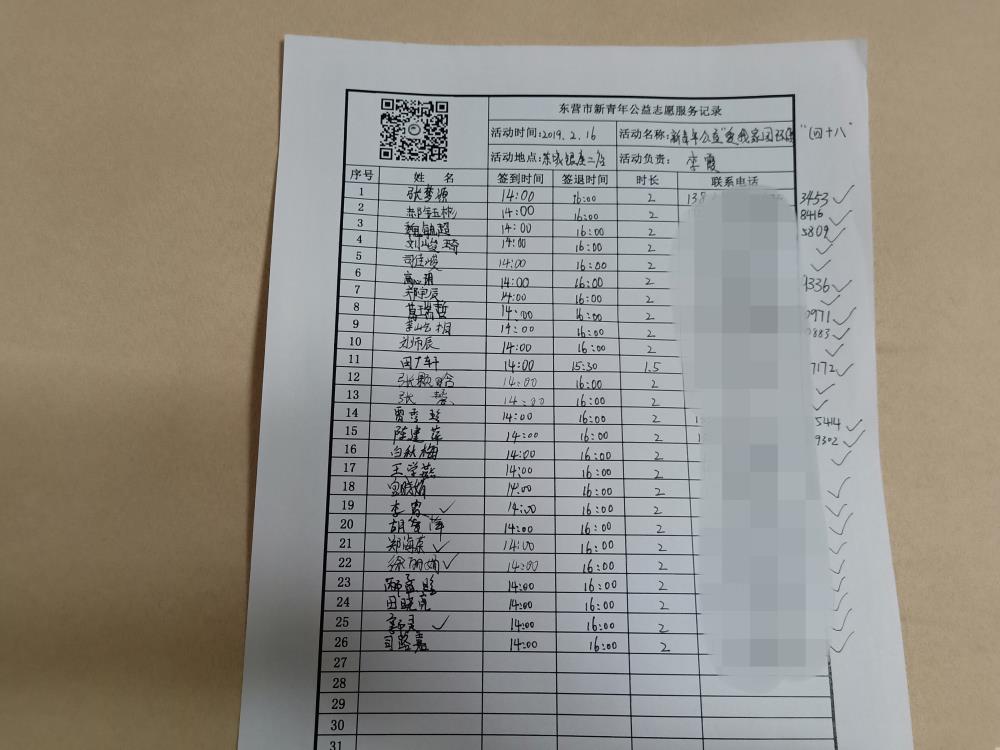 东营市新青年公益志愿服务记录
活动时间:2019.2.16 活动名称:新青年公益"爱我家园环保"(四十八"
活动地点:东城银座二店 活动负责: 李霞
序号 姓 名 签到时间 签退时间 时长 联系电话
1 张梦源 14:00 16:00 2 138 3453 ✓
2 14:00 16:00 2 8416 ✓
3 魏毓超 14:00 16:00 2 5809 ✓
4 刘峻琦 14:00 16:00 2 ✓
5 司佳峻 14:00 16:00 2 ✓
6 高心玥 14:00 16:00 2 9336 ✓
7 郑宇辰 14:00 16:00 2 ✓
8 葛瑞哲 14:00 16:00 2 0971 ✓
9 14:00 16:00 2 0883 ✓
10 孙沛辰 14:00 16:00 2 ✓
11 田广轩 14:00 15:30 1.5 7172 ✓
12 张颢晗 14:00 16:00 2 ✓
13 张 馨 14:00 16:00 2 ✓
14 贾秀珍 14:00 16:00 2 1 5414 ✓
15 陈建萍 14:00 16:00 2 9302 ✓
16 白秋梅 14:00 16:00 2 ✓
17 王学燕 14:00 16:00 2
18 宫晓娟 14:00 16:00 2 ✓
19 李霞 ✓ 14:00 16:00 2 ✓
20 胡雪萍 14:00 16:00 2 ✓
21 郑海东 ✓ 14:00 16:00 2 ✓
22 徐丽娟 ✓ 14:00 16:00 2 ✓
23 14:00 16:00 2 ✓
24 田晓亮 14:00 16:00 2 ✓
25 ✓ 14:00 16:00 2 ✓
26 司路嘉 14:00 16:00 2 ✓
27
28
29
30
31